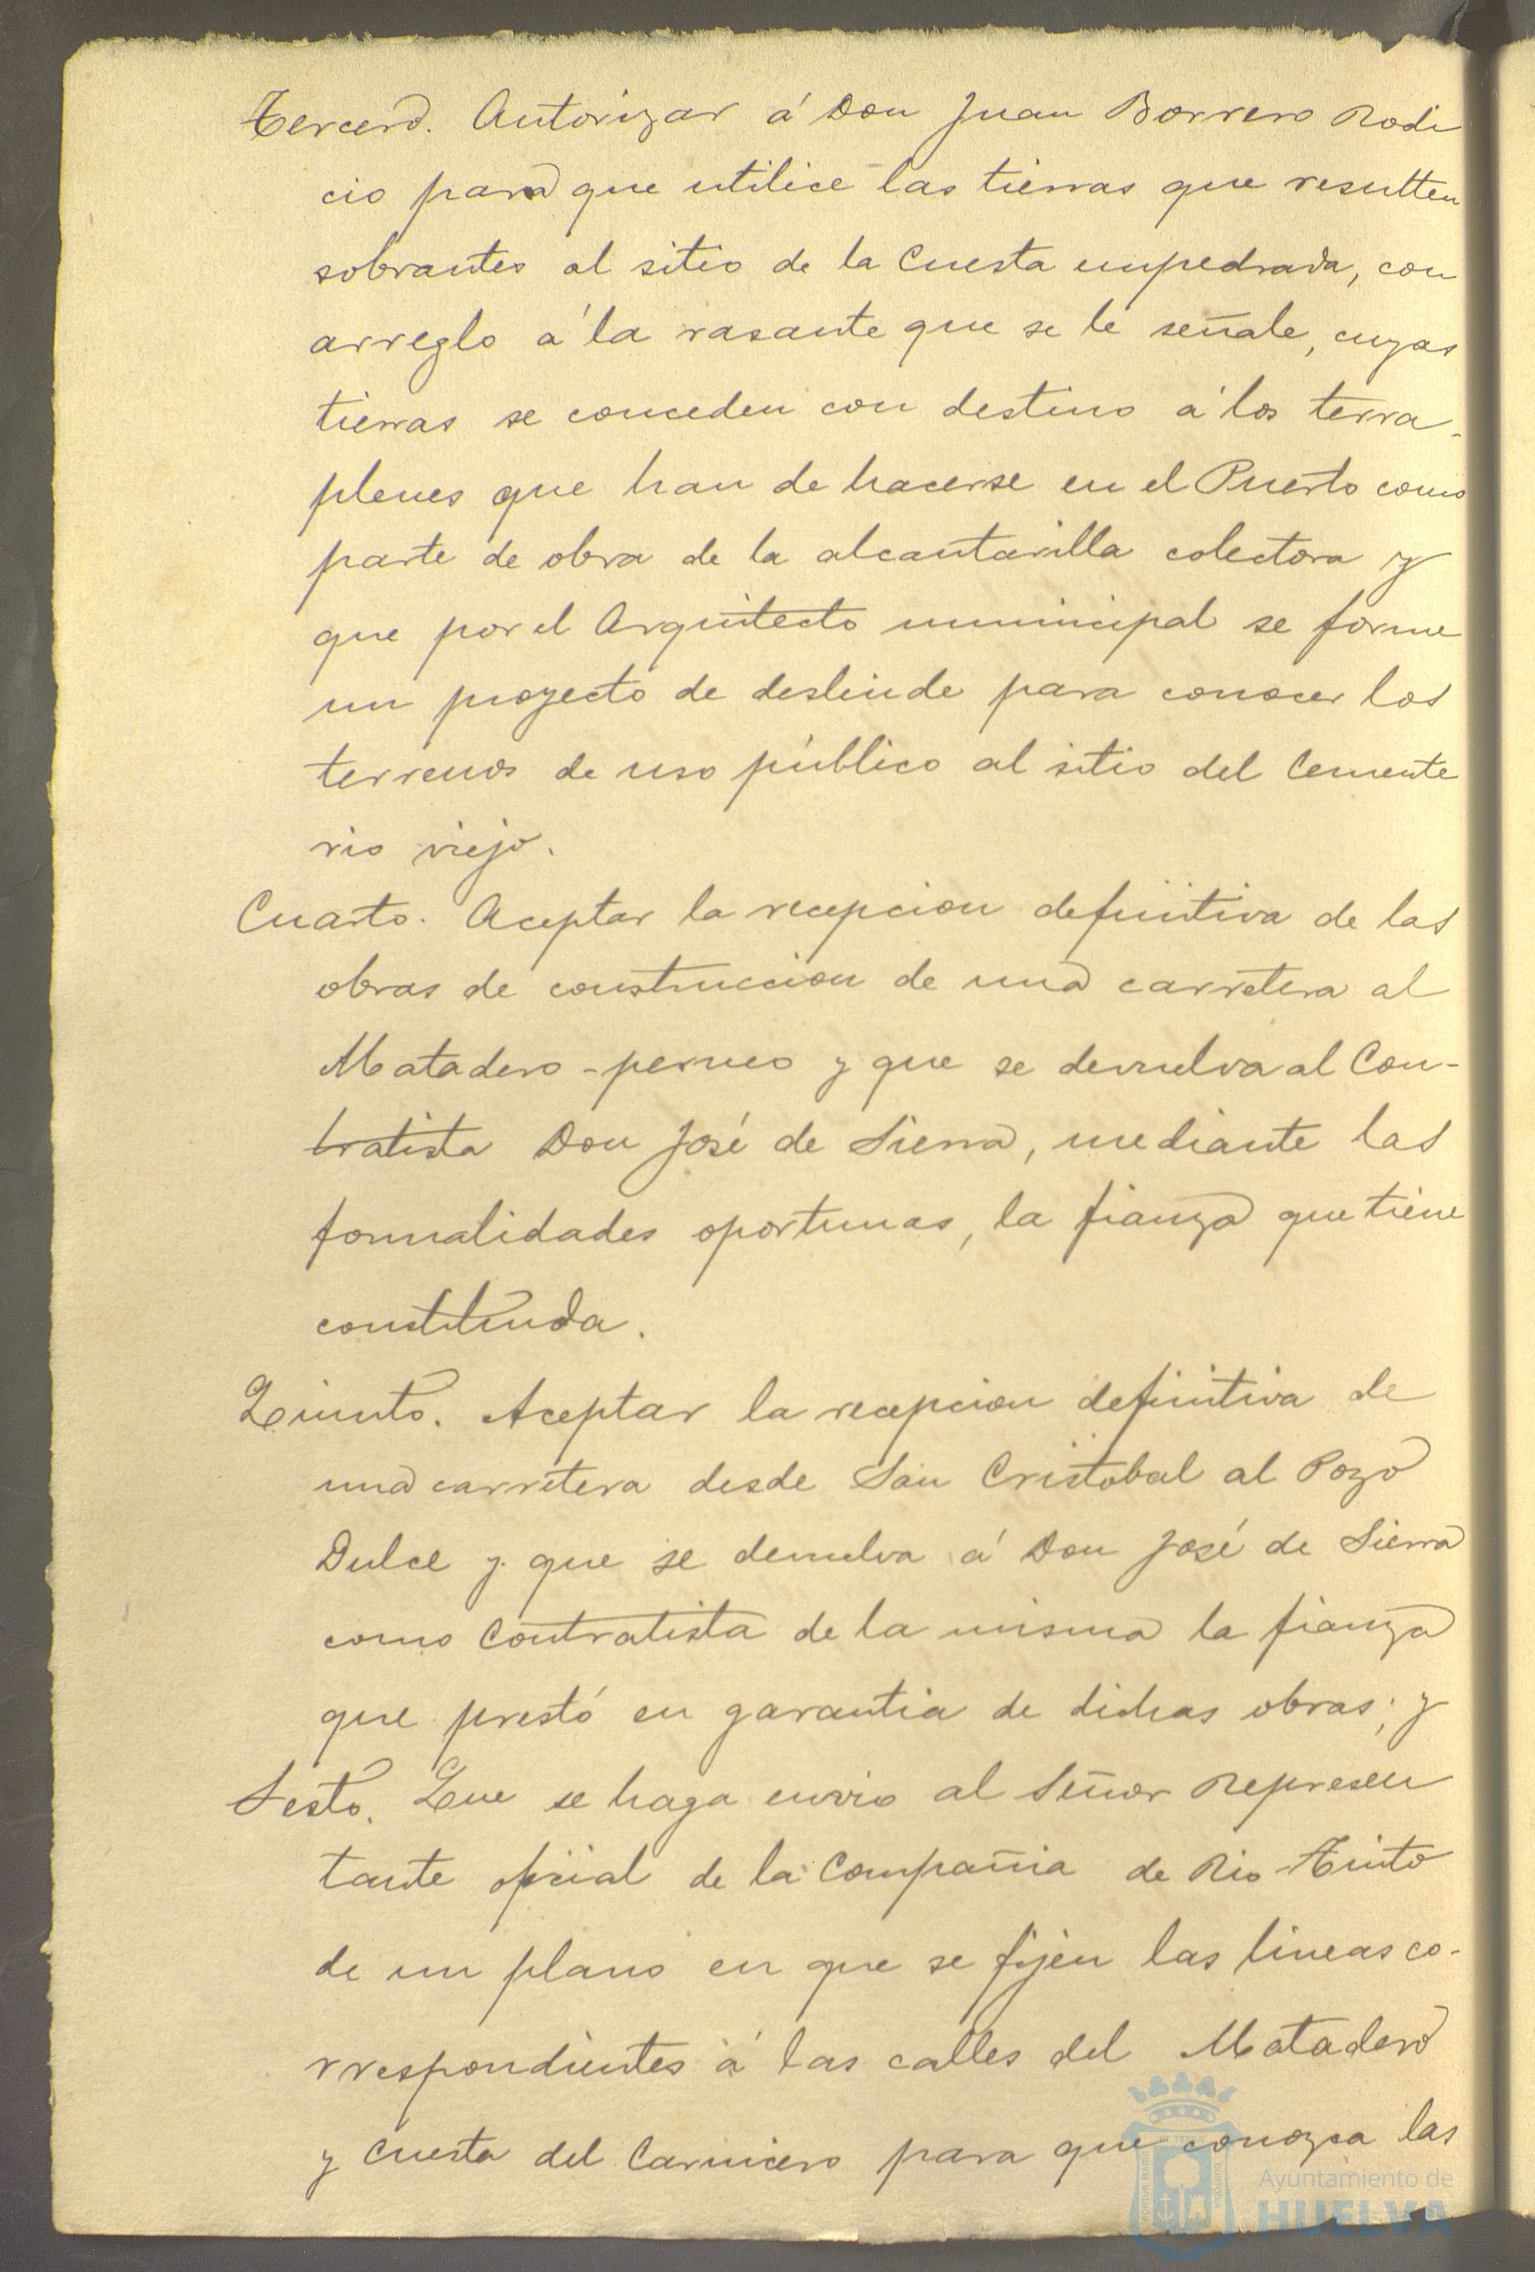 Tercero. Autorizar á Don Juan Borrero Rodi
cio para que utilice las tierras que resulten
sobrantes al sitio de la Cuesta empedrada, con
arreglo á la rasante que se le señale, cuyas
tierras se conceden con destino á los terra-
plenes que han de hacerse en el Puerto como
parte de obra de la alcantarilla colectora y
que por el Arquitecto municipal se forme
un proyecto de deslinde para conocer los
terrenos de uso público al sitio del Cemente
rio viejo.
Cuarto. Aceptar la recepcion definitiva de las
obras de construccion de una carretera al
Matadero-perneo y que se devuelva al Con-
tratista Don José de Sierra, mediante las
formalidades oportunas, la fianza que tiene
constituida.
Quinto. Aceptar la recepcion definitiva de
una carretera desde San Cristobal al Pozo
Dulce y que se devuelva á Don José de Sierra
como Contratista de la misma la fianza
que prestó en garantia de dichas obras; y
Sesto. Que se haga envio al Señor Represen
tante oficial de la Compañia de Rio-Tinto
de un plano en que se fijen las lineas co-
rrespondientes á las calles del Matadero
y Cuesta del Carnicero para que conozca las
Ayuntamiento de
HUELVA